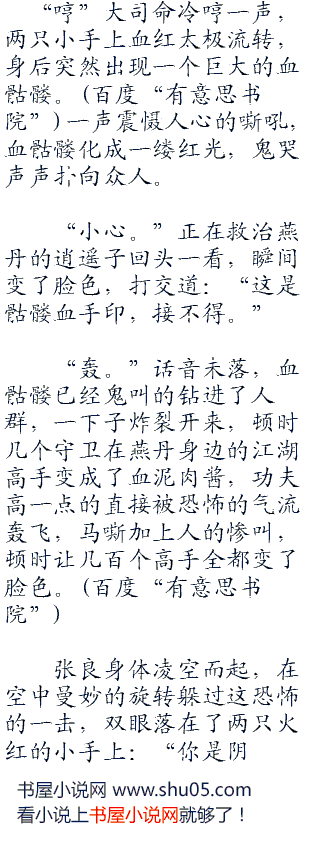 “哼”大司命冷哼一声，
两只小手上血红太极流转，
身后突然出现一个巨大的血
骷髅。(百度“有意思书
院”)一声震慑人心的嘶吼，
血骷髅化成一缕红光，鬼哭
声声扑向众人。
“小心。”正在救治燕
丹的逍遥子回头一看，瞬间
变了脸色，打交道：“这是
骷髅血手印，接不得。”
“轰。”话音未落，血
骷髅已经鬼叫的钻进了人
群，一下子炸裂开来，顿时
几个守卫在燕丹身边的江湖
高手变成了血泥肉酱，功夫
高一点的直接被恐怖的气流
轰飞，马嘶加上人的惨叫，
顿时让几百个高手全都变了
脸色。(百度“有意思书
院”)
张良身体凌空而起，在
空中曼妙的旋转躲过这恐怖
的一击，双眼落在了两只火
红的小手上：“你是阴
书屋小说网 www.shu05.com
看小说上书屋小说网就够了！